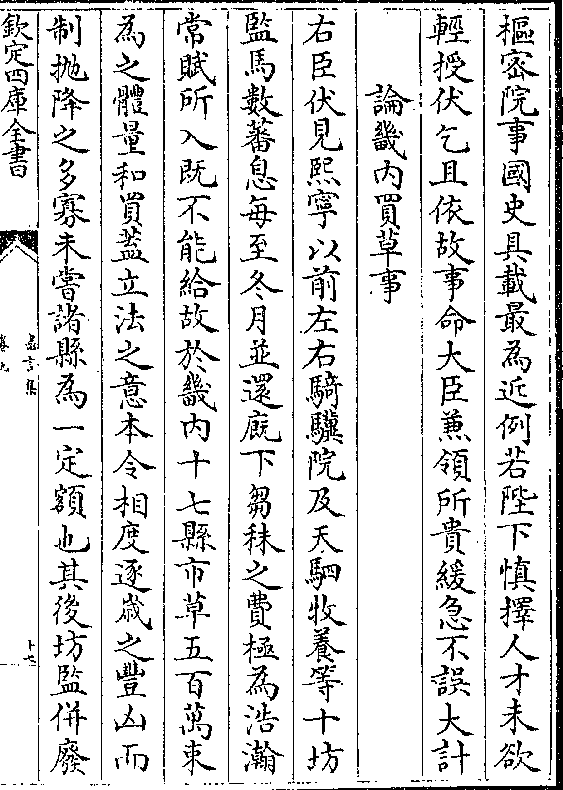 樞密院事國史具載最為近例若陛下慎擇人才未欲
輕授伏乞且依故事命大臣兼領所貴緩急不誤大計
論畿內買草事
右臣伏見熙寧以前左右騏驥院及天駟牧養等十坊
監馬數蕃息每至冬月並還廐下芻秣之費極為浩瀚
常賦所入既不能給故於畿內十七縣市草五百萬束
為之體量和買葢立法之意本令相度逐歲之豐凶而
制抛降之多寡未嘗諸縣為一定額也其後坊監併廢
欽定四庫全書
盡言集
卷九